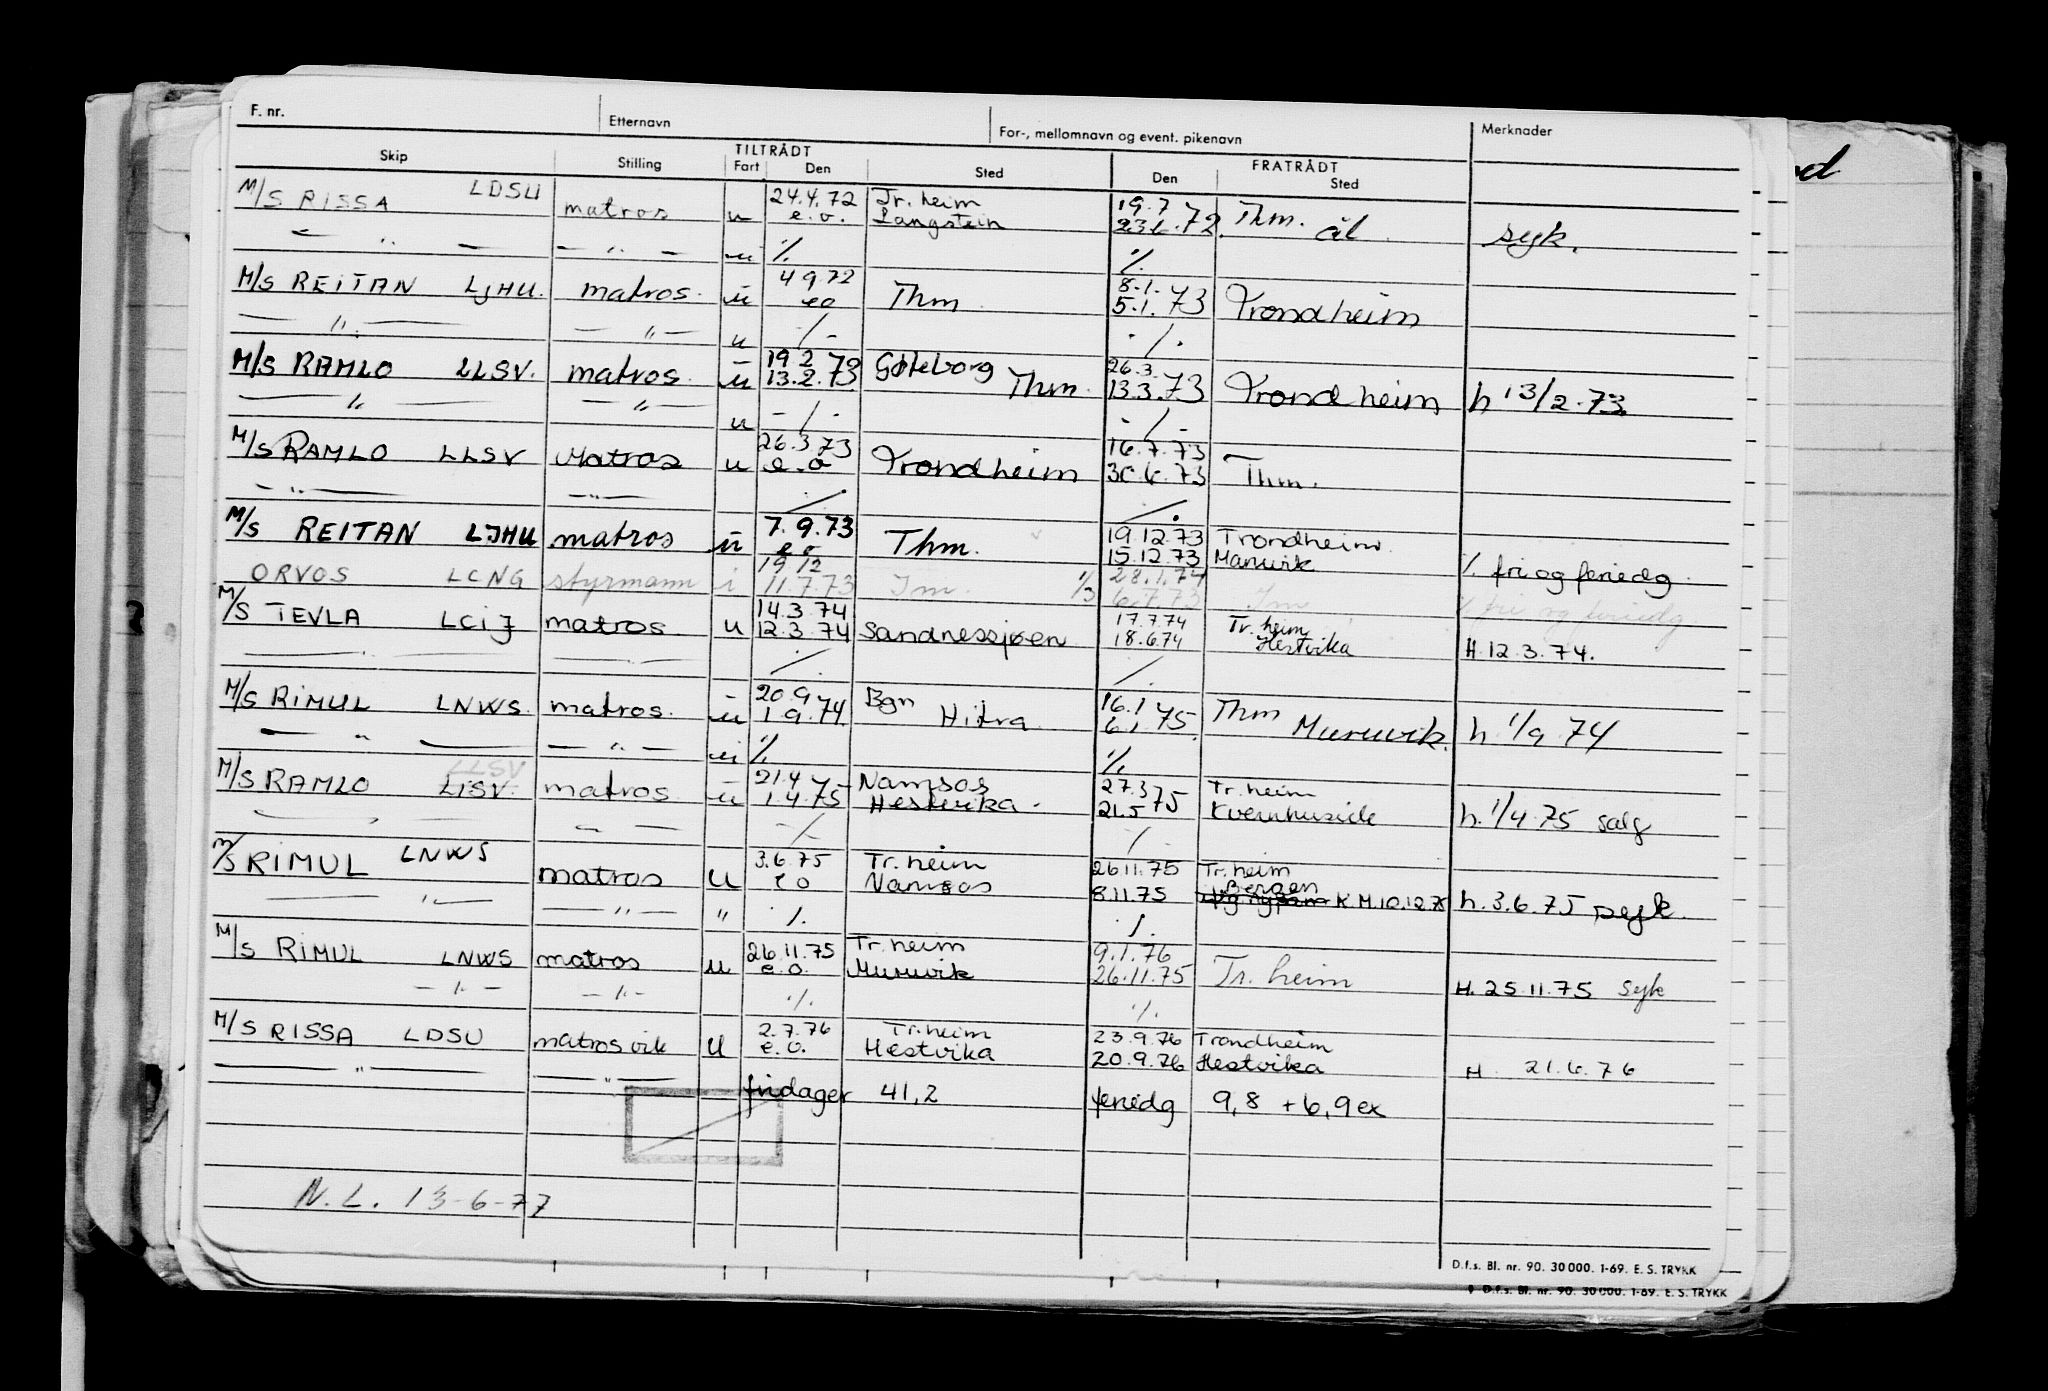 F. nr. Etternavn For-, mellomnavn og event. pikenavn Merknader
TILTRÅDT FRATRÅDT
Skip Stilling Fart Den Sted Den Sted
M/S RISSA LDSU matros u 24.4.72 Tr. heim 19.7 72 Thm.
e.o. Langstein 23.6.72. syk.
— " — — " — u ·/. ·/.
M/S REITAN LJHU. matros. u 4 9.72 Thm. 8.1. 73 Trondheim
eo 5.1. 73
— " — — " — u -/- ·/·
M/S RAMLO LLSV. matros. u 19 2 73 Gøteborg 26.3. Trondheim h 13/2.73.
13.2.73 Thm. 13.3.73
— " — — " — u -/- -/-
M/S RAMLO LLSV Matros u 26.3 73 Trondheim 16.7.73 Thm.
e.o 30.6.73
— " — — " — ·/· ·/·
M/S REITAN LJHU matros u 7.9.73 Thm. 19.12.73 Trondheim.
e o 15.12.73 ·/. fri og feriedg.
ORVOS LCNG styrmann i 19 12 28.1.74
11.7.73 6.7.73 fri og feriedg
M/S TEVLA LCIJ matros u 14.3.74 Sandnessjøen 17.7.74 Tr. heim
12.3.74 18.6.74 Hestvika H.12.3.74.
·/· ·/·
M/S RIMUL LNWS. matros. u 20.9 74 Bgn 16.1 75 Thm
1 9.74. Hitra 6.1 75. Muruvik. h. 1/9 74
— " — — " — u ·/. ·/.
LLSV
M/S RAMLO LISV. matros u 21.4 75 Namsos 27.3 75 Tr. heim
1.4.75 Hestvika. 21.5 h. 1/4.75 salg
— " — — " — -/- ·/·
M/S RIMUL LNWS matros u 3.6.75 Tr. heim 26.11.75 Tr. heim
e o Namsos 8.11.75 Bergen K M.10.12.75 h. 3.6.75
— " — — " — " ·/. ·/.
M/S RIMUL LNWS matros u 26.11.75 Tr. heim 9.1.76 Tr. heim
e.o. Muruvik 26.11.75 H. 25.11.75 Syk
— " — — " — ·/. ·/.
M/S RISSA LDSU matros vik u 2.7.76 Tr. heim 23.9.76 Trondheim
e.o. Hestvika 20.9.76 Hestvika H. 21.6.76
— " — — " —
fridager 41,2 feriedg 9,8 + 6,9 ex
N.L. 13-6-77
D.f.s. Bl. nr. 90. 30 000. 1-69. E. S. TRYKK
D.f.s. Bl. nr. 90. 30 000. 1-69. E. S. TRYKK